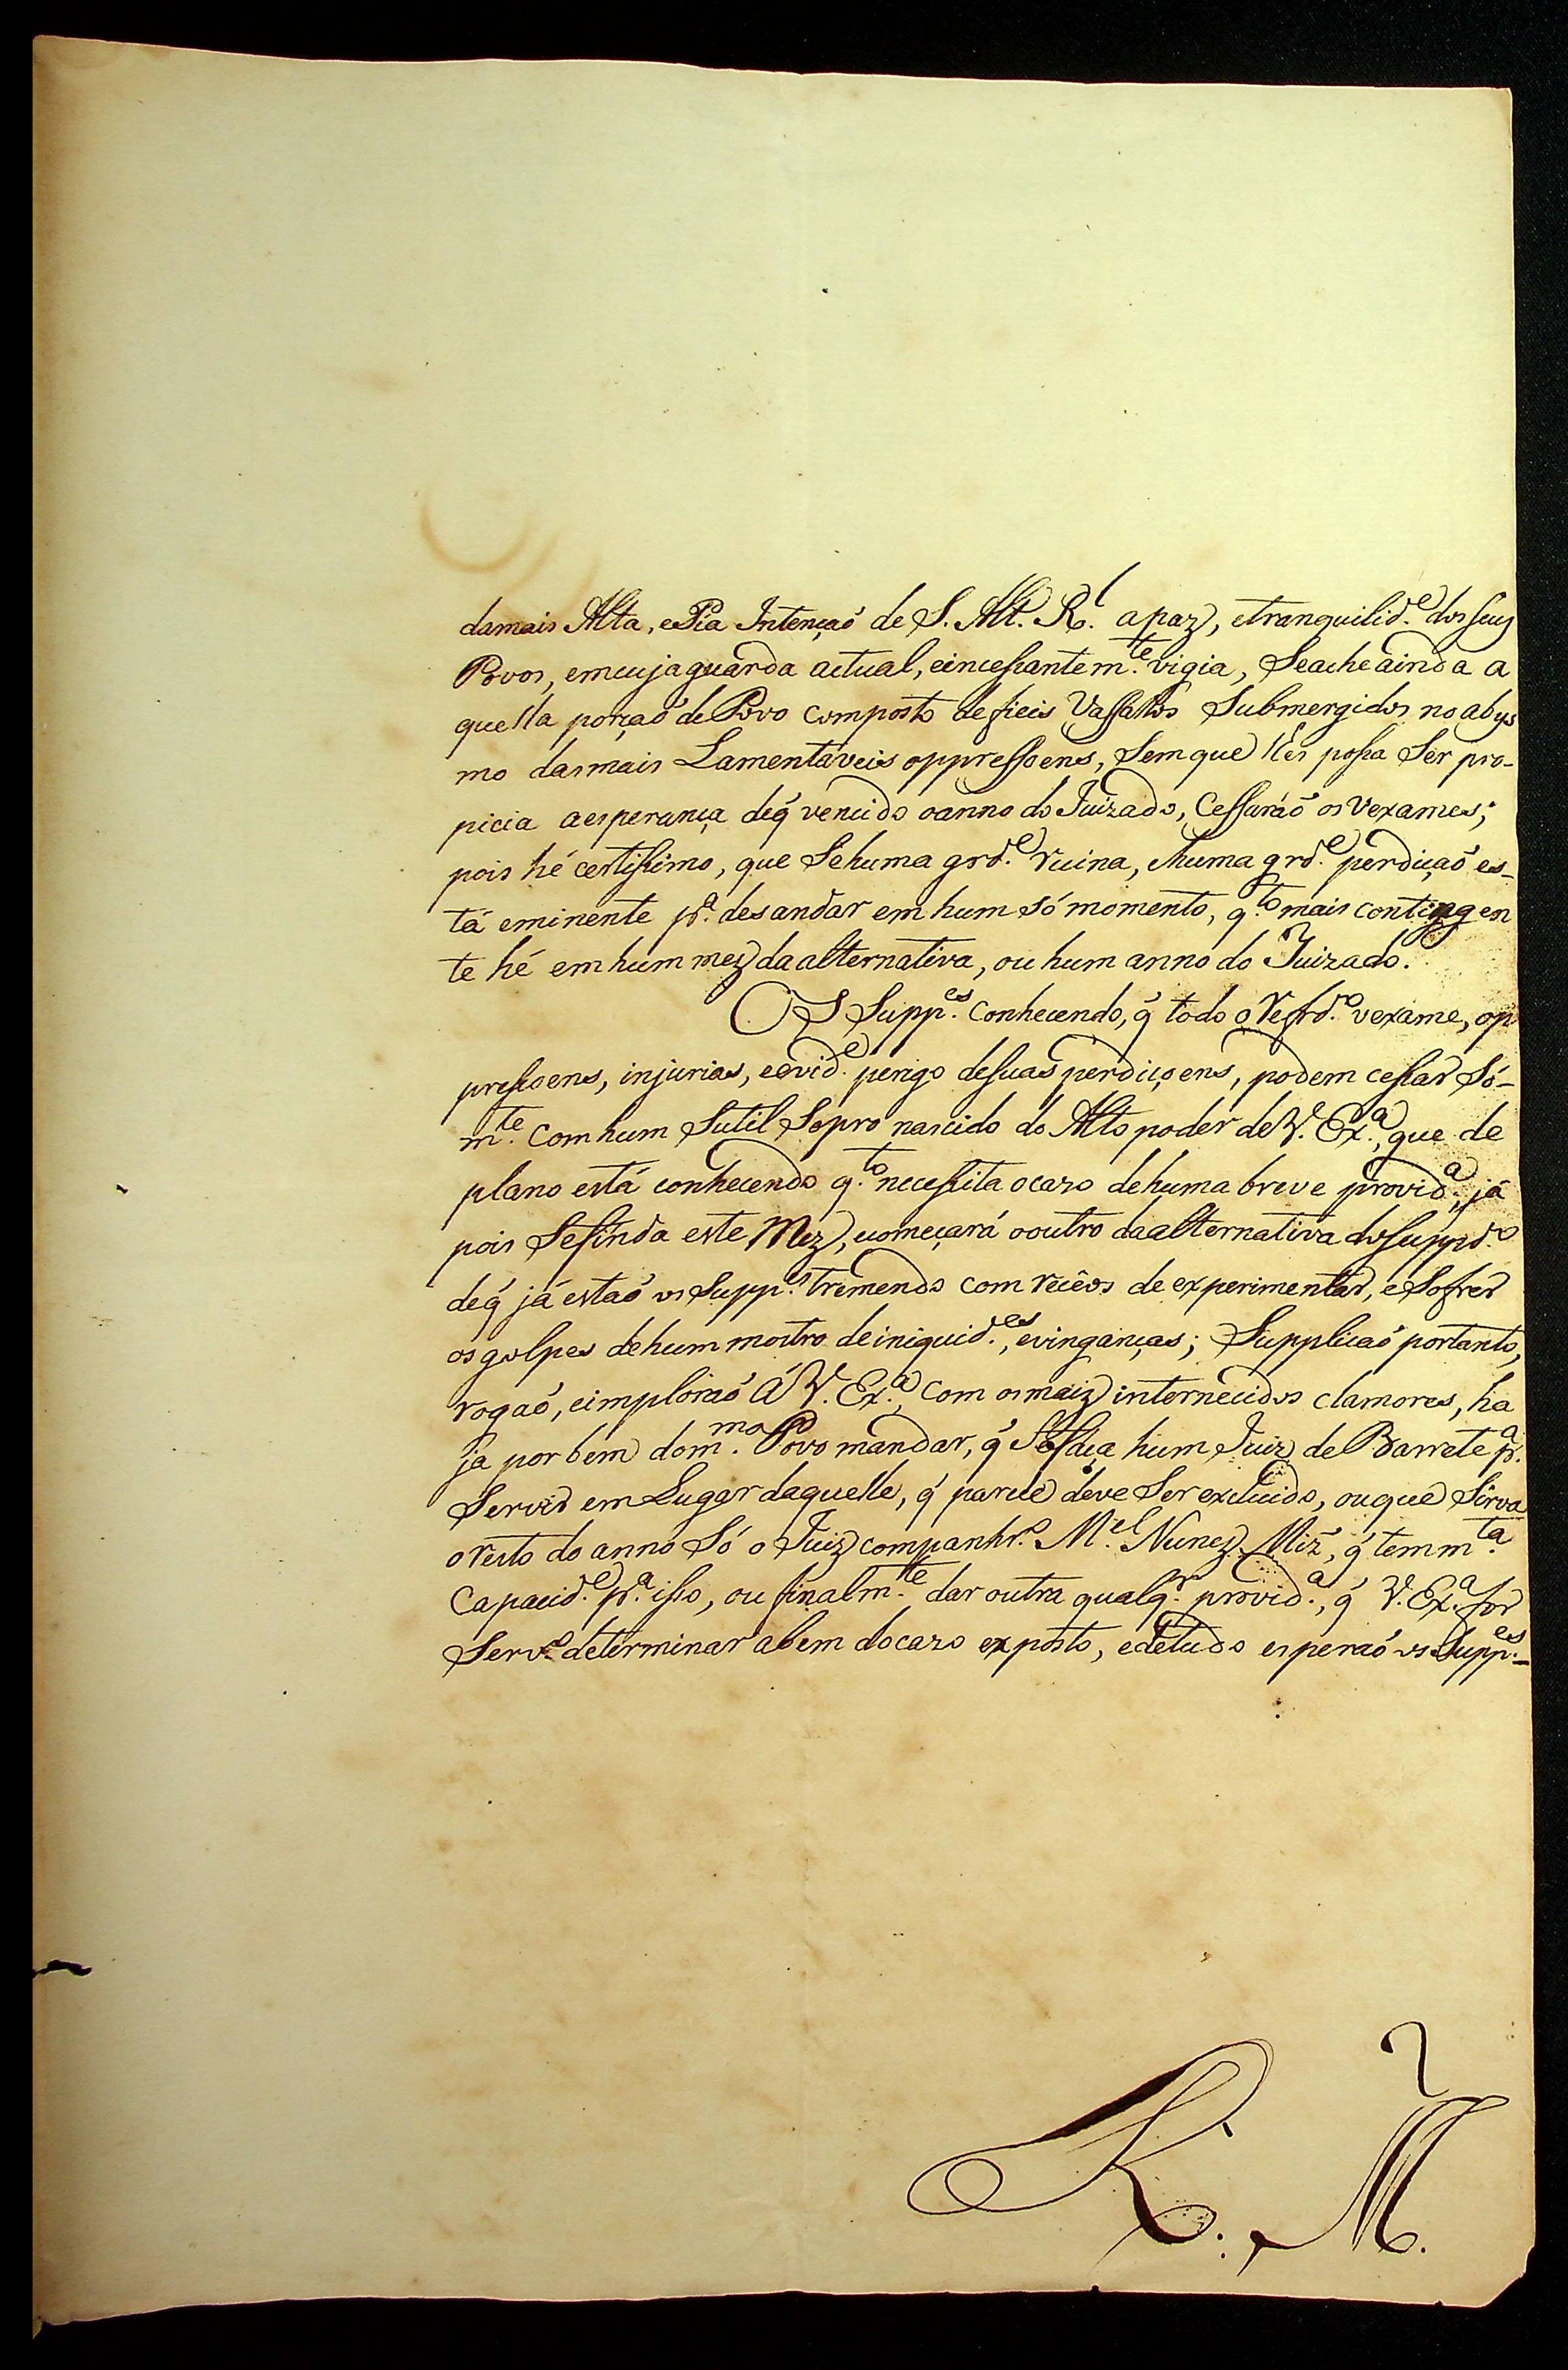 damais Alta, e Pia Intençaõ de S. Alt. R.l a paz, e tranquilid.e dos seus
Povos, em cuja guarda actual, e incessantem.te vigia, Se ache ainda a
quella porçaõ de Povo composto de fieis Vassallos Submergidos no abys
mo das mais Lamentaveis oppressoens, Sem que lles possa Ser pro-
picia a esperança de q̃ vencido o anno do Juizado, Cessaráõ os Vexames;
pois hé certissimo, que Se huma grd.e ruina, e huma grd.e perdiçaõ es-
tá eminente p.a desandar em hum só momento, q.to mais contingen
te hé em hum mez da alternativa, ou hum anno do Juizado.
OS Supp.es conhecendo, q̃ todo o Refrd.o vexame, op
pressoens, injurias, e evid.e perigo de suas perdiçoens, podem cessar Só-
m.te com hum Sutil Sopro nascido do Alto poder de V. Ex.a, que de
plano está conhecendo q.to necessita o cazo de huma breve provid.a, já
pois Se finda este Mez, começará o outro da alternativa do Suppd.o
de q̃ já estaõ os Supp.es tremendo com recêos de experimentar, e Sofrer
os golpes de hum mostro de iniquid.es, e vinganças; Supplicaõ portanto,
rogaõ, e imploraõ á V. Ex.a, com os maiz internecidos clamores, ha
ja por bem do m.mo Povo mandar, q̃ Se faça hum Juiz de Barrete p.a
Servir em Lugar daquelle, q̃ parece deve Ser excluido, ou que Sirva
o resto do anno Só o Juiz companhr.o M.el Nunez Miz̃, q̃ tem m.ta
Capacid.e p.a isso, ou finalm.te dar outra qualq.r provid.a, q̃ V. Ex.a for
Serv.o determinar a bem do cazo exposto, e de tudo esperaõ os Supp.es_
R. M.